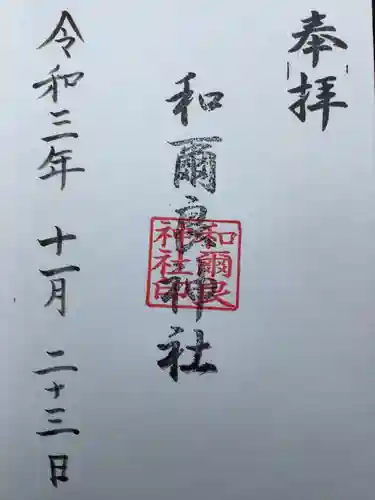 奉拝
和爾良神社
和爾良
神社印
令和三年 十一月 二十三日